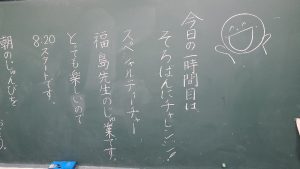 今日の一時間目は、
そろばんにチャレンジ!!
スペシャルティーチャー
福島先生のじゅ業です。
とても楽しいので
8:20スタートです。
朝のじゅんびを